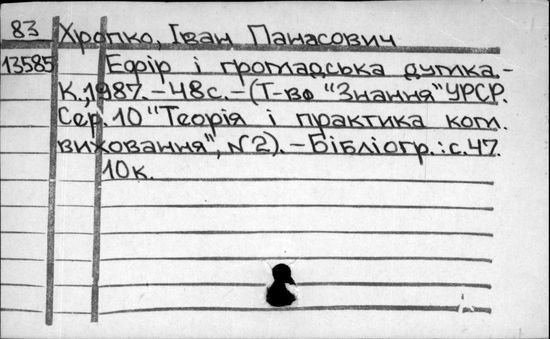 83 Хропко, Іван Панасович
13585 Ефір і громадська думка.-
К.,1987.-48с.-(Т-во "Знання"УРСР.
Сер.10 "Теорія і практика ком.
виховання",№2).-Бібліогр.:с.47.
10к.